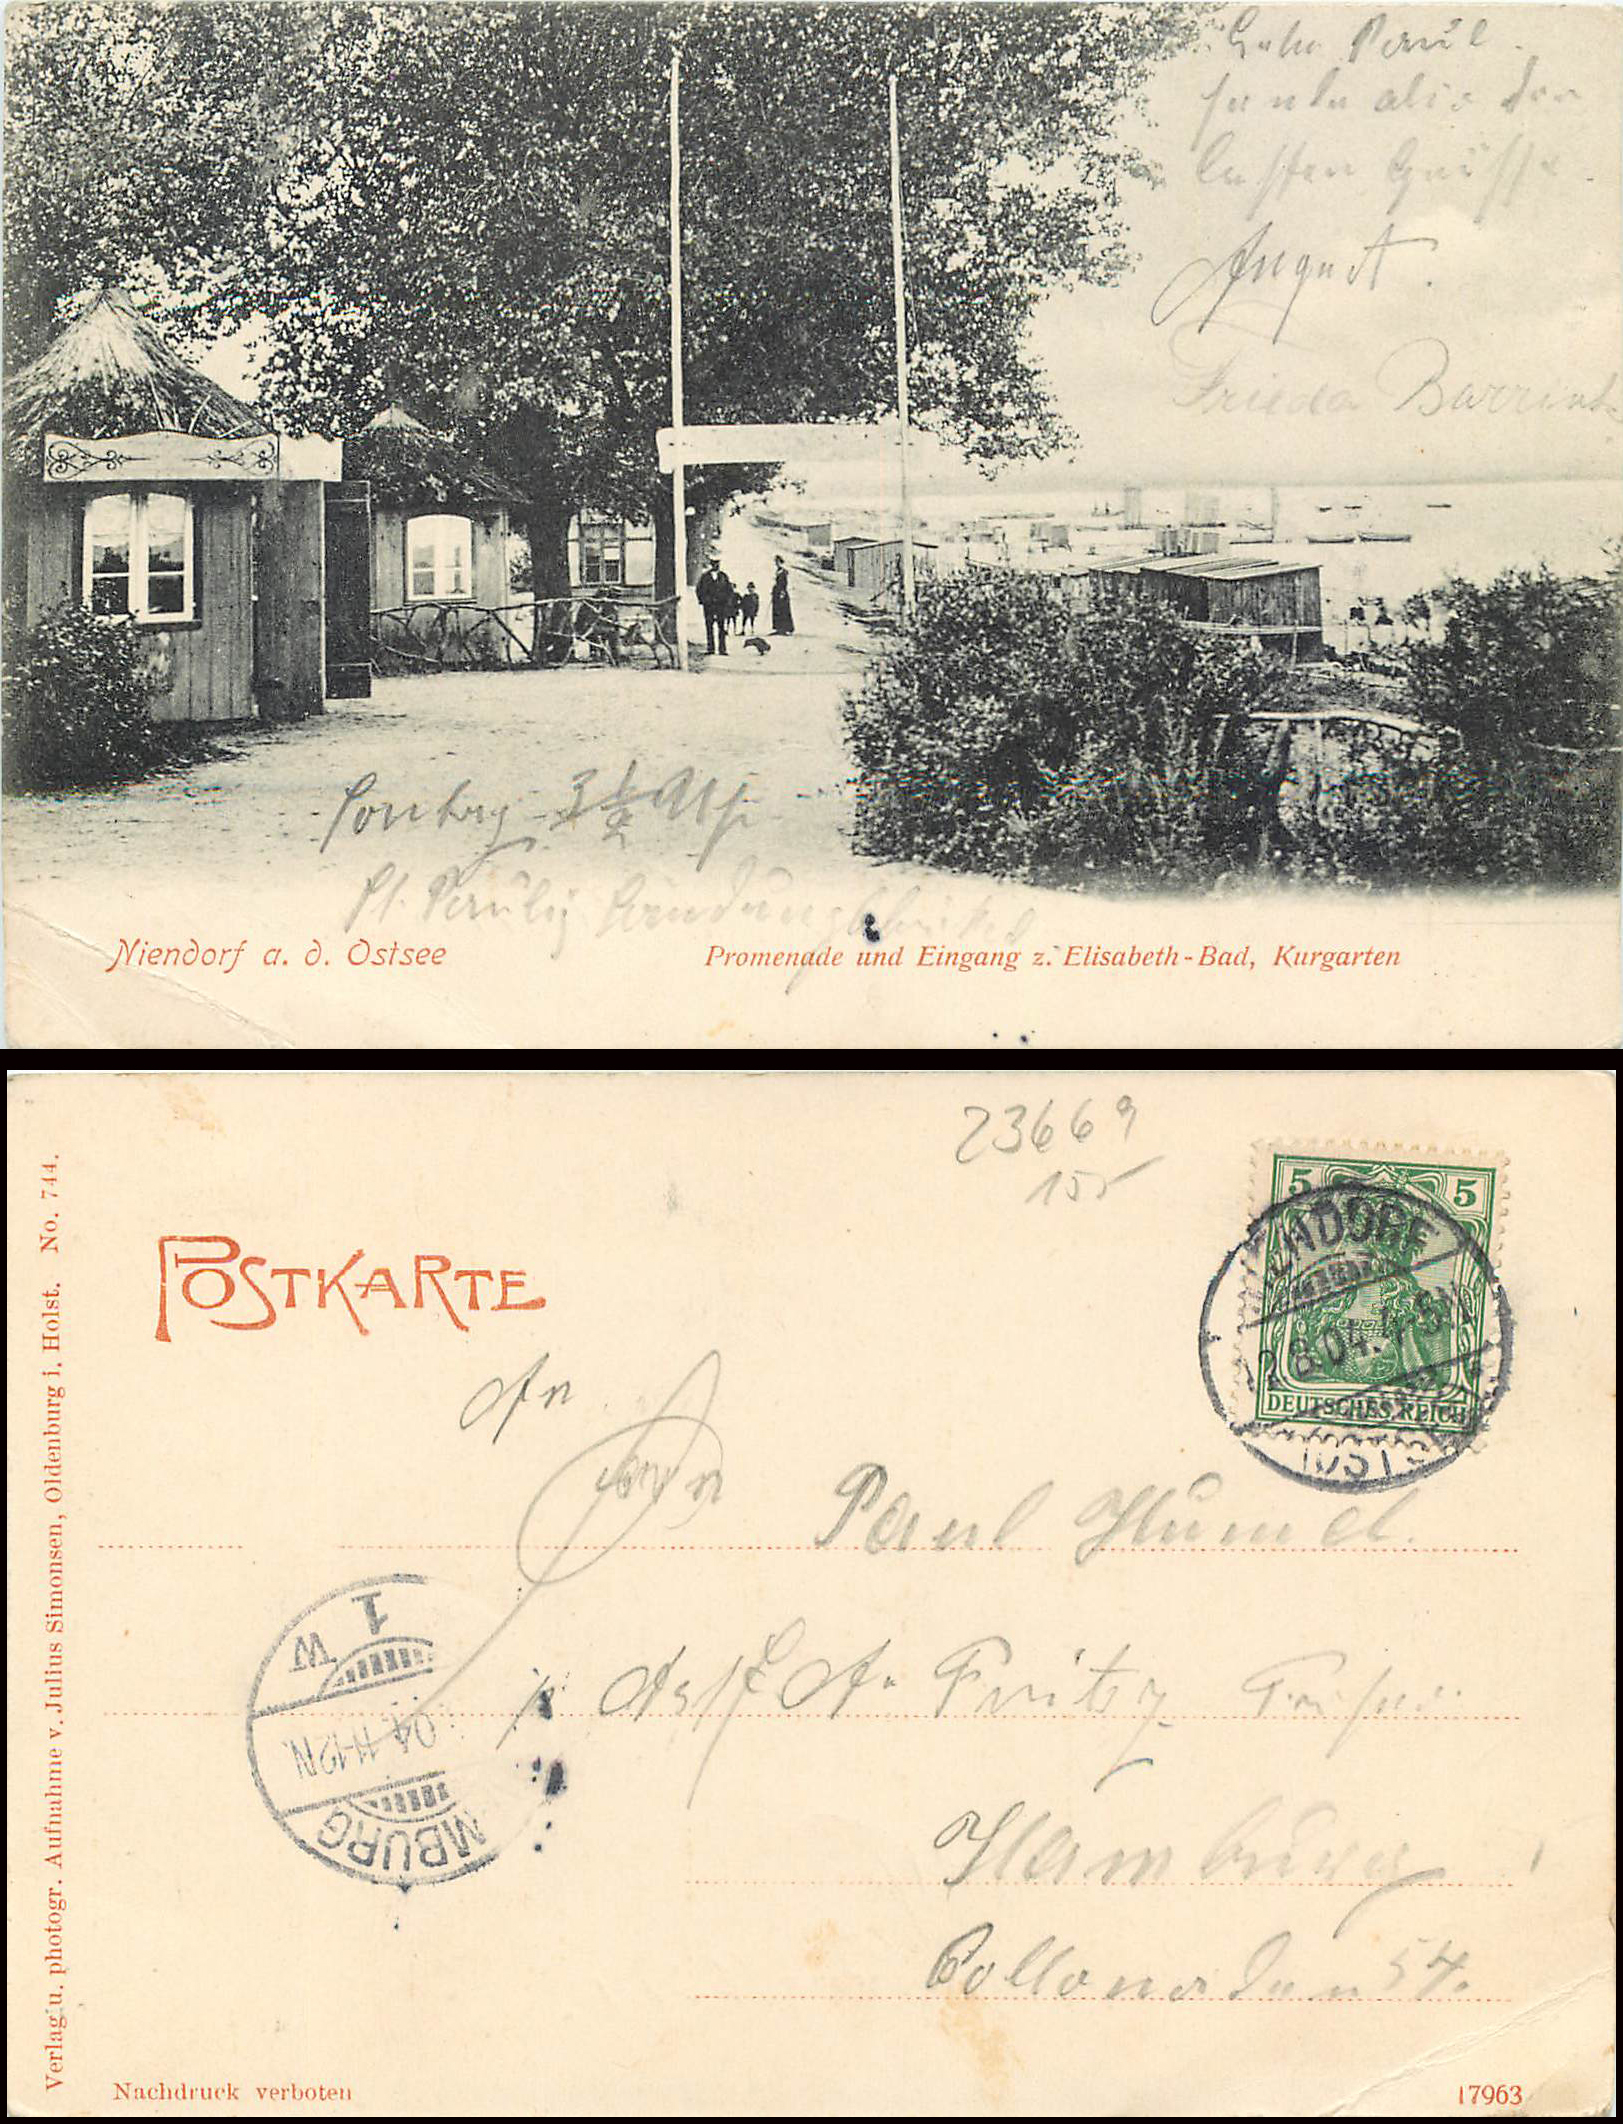 Liebe Paul.
sende alle die
besten Grüsse
August.
Frieda
Sonntag 3 1/2 Uhr
St. Pauly Landungsbrücke
Niendorf a. d. Ostsee
Promenade und Eingang z. Elisabeth-Bad, Kurgarten
23669
POSTKARTE
5 5
DEUTSCHES REICH
NIENDORF
2.8.04.
OSTS
An
Herrn Paul Hümel.
Fritz
Hamburg
Collonaden 54.
1
W
04. 11-12 N.
MBURG
Verlag u. photogr. Aufnahme v. Julius Simonsen, Oldenburg i. Holst. No. 744.
Nachdruck verboten
17963